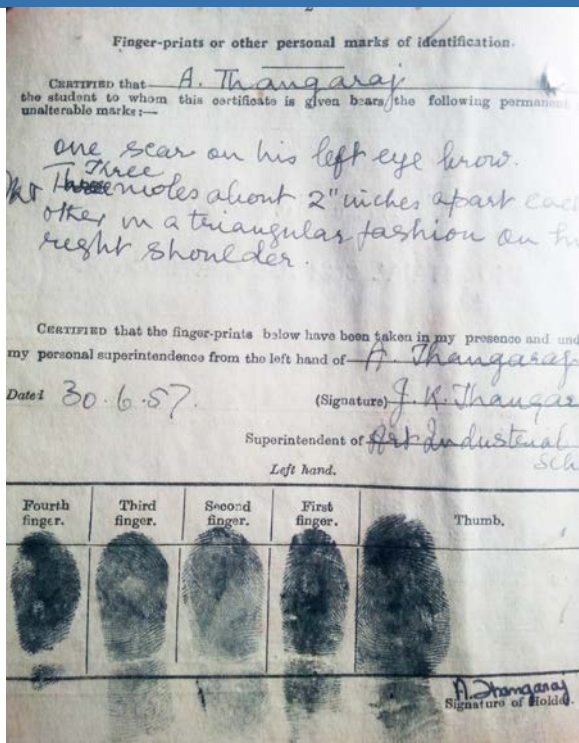 2
Finger-prints or other personal marks of identification.
CERTIFIED that A. Thangaraj
the student to whom this certificate is given bears the following permanent
unalterable marks:—
one scar on his left eye brow.
Three
moles about 2" inches apart each
other in a triangular fashion on
right shoulder.
CERTIFIED that the finger-prints below have been taken in my presence and und
my personal superintendence from the left hand of A. Thangaraj
Dated 30.6.57. (Signature) J. K. Thangar
Superintendent of Art Industrial
Sch
Left hand.
Fourth finger. Third finger. Second finger. First finger. Thumb.
A. Thangaraj
Signature of Holder.